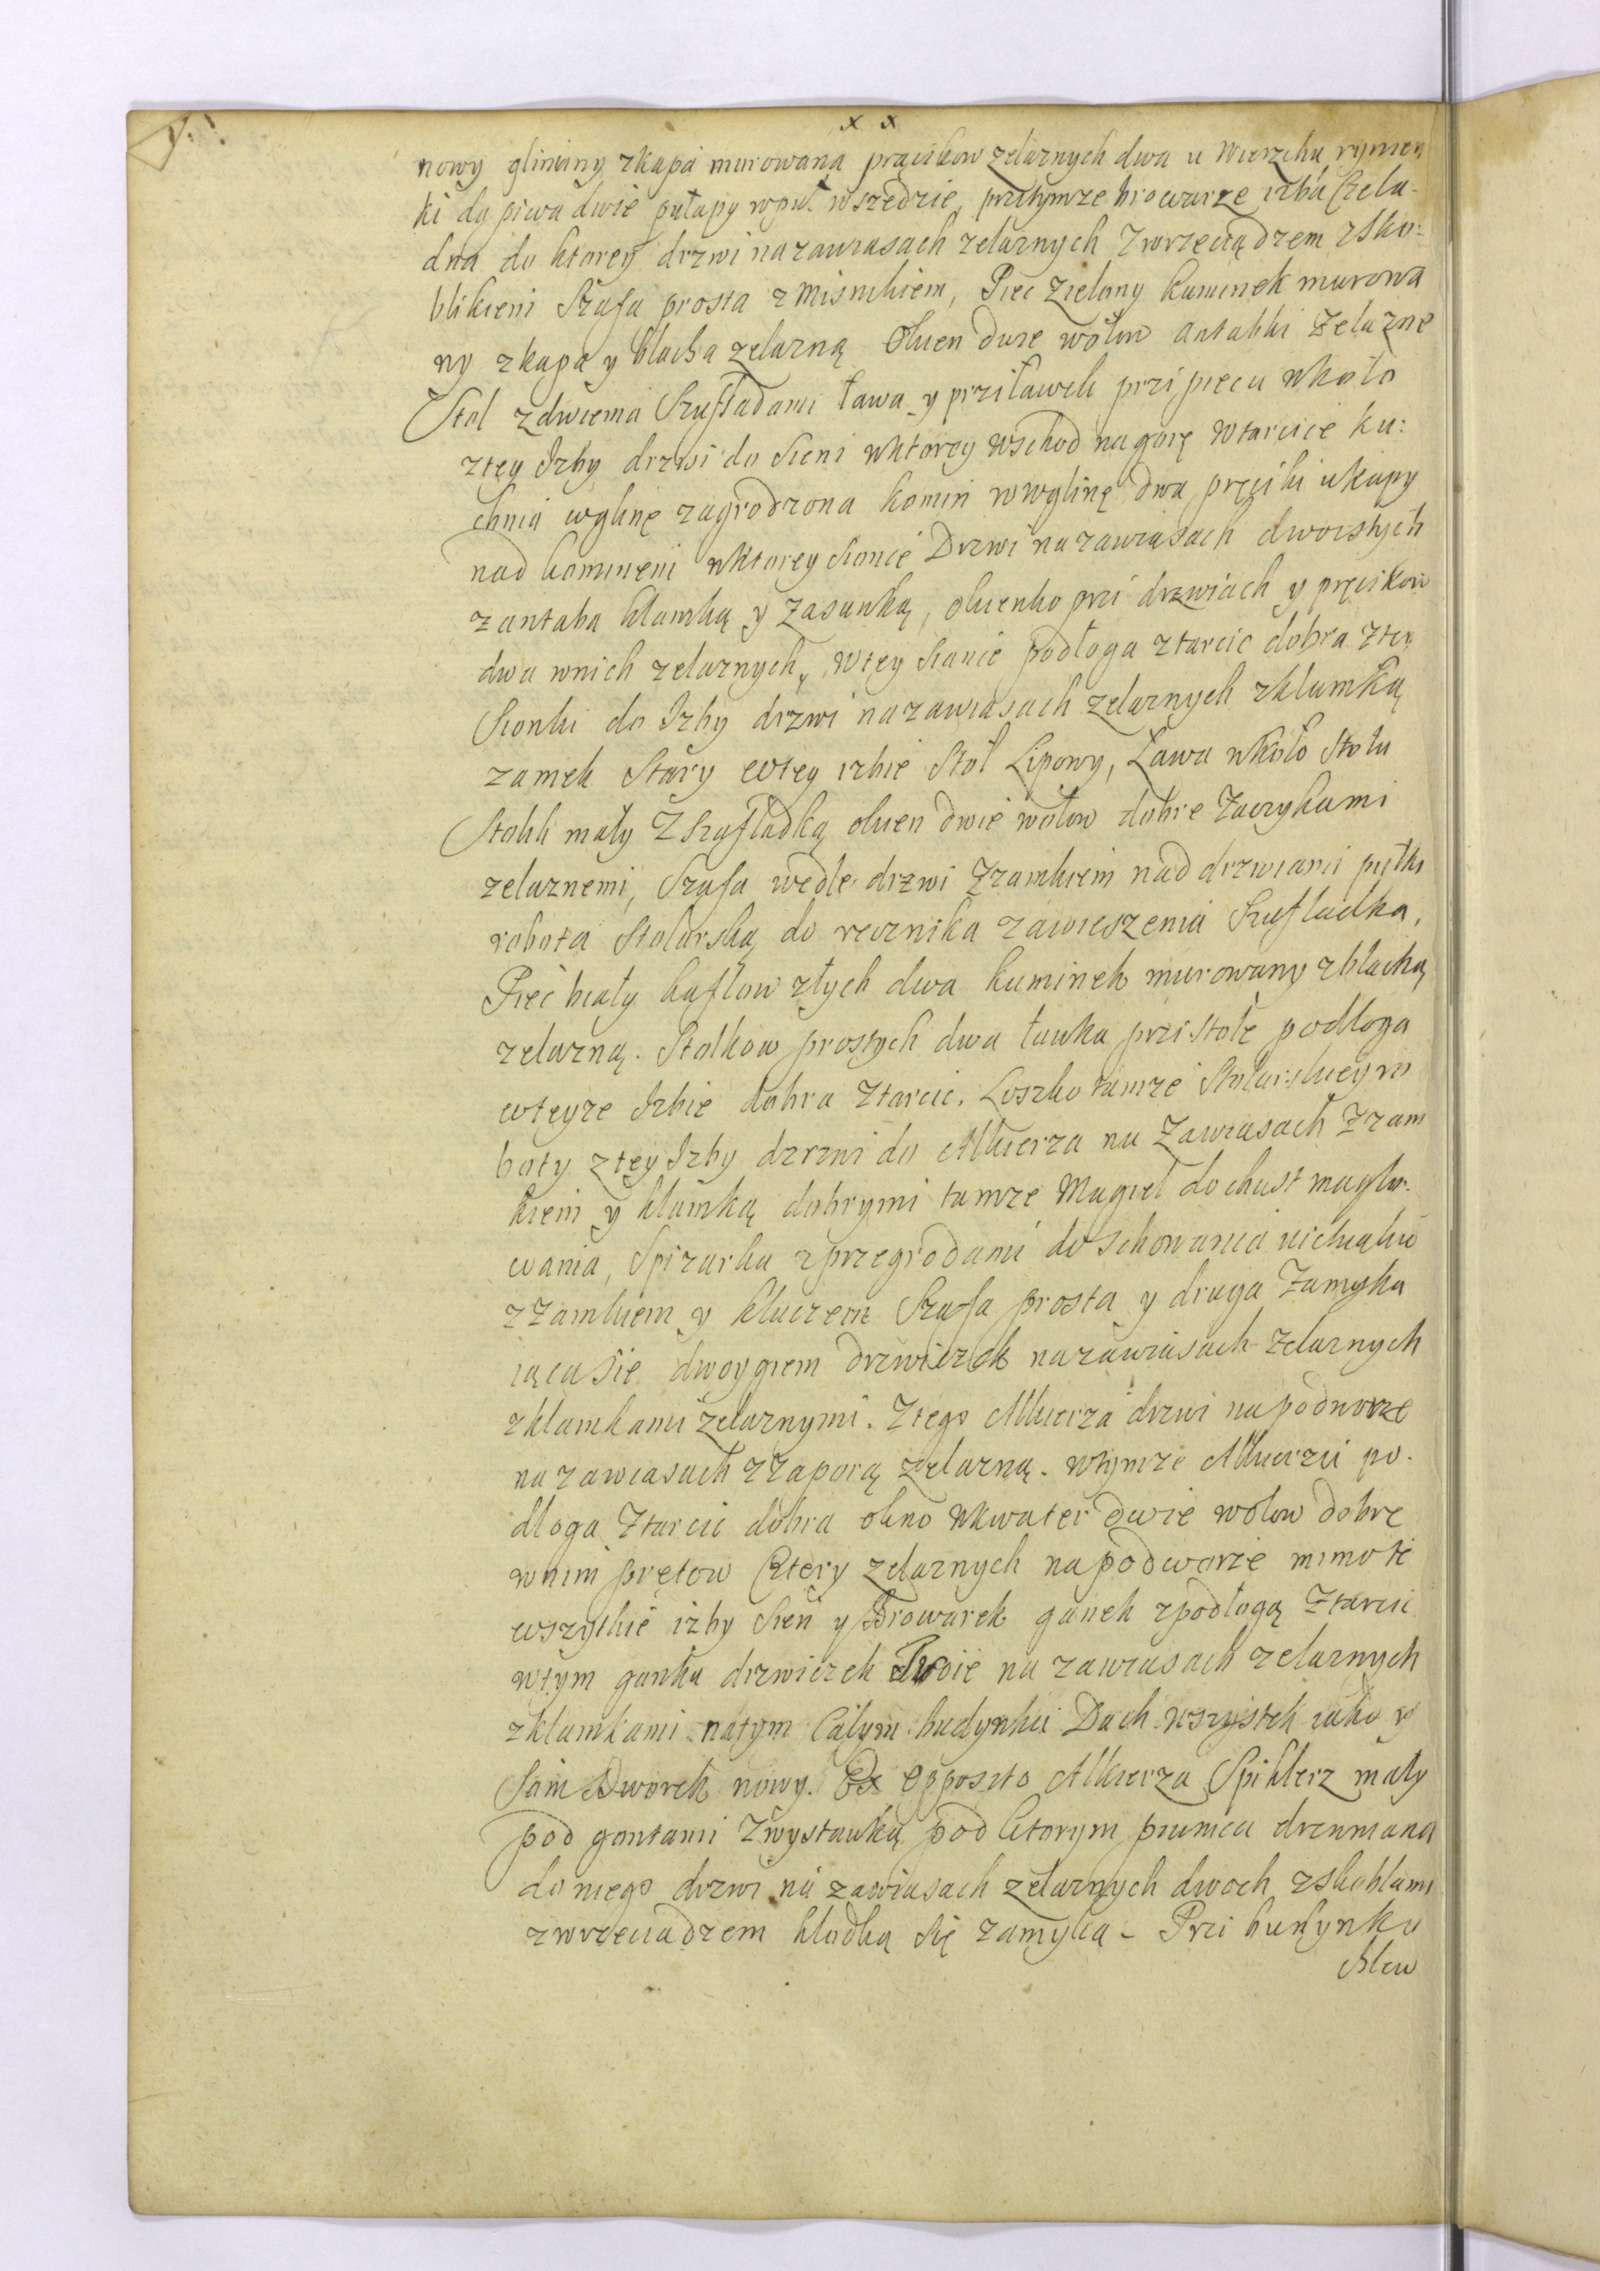 x x
nowy gliniany z kapą murowaną pręcikow zelaznych dwa u wierzchu rynien
ki do piwa dwie pułapy wpuł wszędzie, przitymze browarze izba Czela-
dna do ktorey drzwi nazawiasach zelaznych z wrzeciądzem z sko:
blikiem Szafa prosta z Misnikiem, Piec Zielony kuminek murowa
ny z kapą y blachą zelazną Okien dwie wołow antabki zelazne
Stol z dwiema Szufladami ława y przyławek przi piecu wkoło
z tey Izby drzwi do Sieni wktorey wschod na gorę w tarcice ku:
chnia w glinę zagrodzona komin w wglinę dwa pręciki u kapy
nad kominem wktorey Sionce Drzwi nazawiasach dwoistych
z antabą klamką y zasuwką, okienko przi drzwiach y pręcikow
dwa wnich zelaznych, wtey Sionce podłoga z tarcic dobra z tey
Sionki do Izby drzwi nazawiasach zelaznych z klamką
zamek Stary wtey izbie Stol Lipowy, Ława wkoło Stołu
Stolik mały z Szufladką okien dwie wołow dobre zaczykami
zelaznemi, Szafa wedle drzwi z zamkiem nad drzwiami pułki
robota Stolarską do recznika zawieszenia Szufladka,
Piec biały kaflow złych dwa kuminek murowany z blachą
zelazną. Stolkow prostych dwa ławka przi Stole podłoga
wteyze Izbie dobra z tarcic. Łoszko tamze Stolarskiey ro
boty z tey Izby drzwi do Alkierza na Zawiasach z zam
kiem y klamką dobrymi tamze Magiel do chust maglo:
wania, Spizarka z przegrodami do schowania
z zamkiem y kluczem Szafa prosta y druga Zamyka
iąca sie dwoygiem drzwiczek na zawiasach zelaznych
z klamkami zelaznymi. Z tego Alkierza drzwi na podworze
na zawiasach z zaporą zelazną. wtymze Alkierzu po-
dłoga z tarcic dobra okno wkwater dwie wołow dobre
wnim prętow Cztery zelaznych na podworze mimo te
wszytkie izby Sien y Browarek ganek z podłogą z tarcic
wtym ganku drzwiczek dwoie na zawiasach zelaznych
z klamkami natym Całym budynku Dach wszystek iako y
Sam Dworek nowy. Ex opposito Alkierza Spiklerz mały
pod gontami z wystawką pod ktorym piwnica drewniana
do niego drzwi na zawiasach zelaznych dwoch z skoblami
z wrzeciadzem kłodką się zamyka – Przi budynku
Chlew